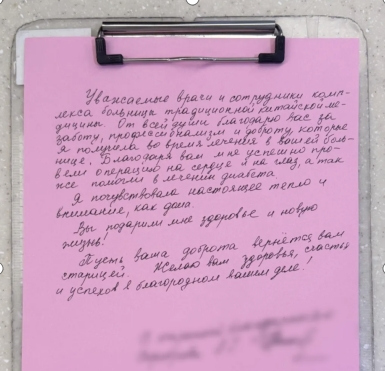 Уважаемые врачи и сотрудники комп-
лекса больницы традиционной китайской ме-
дицины. От всей души благодарю вас за
заботу, профессионализм и доброту, которые
я получила во время лечения в вашей боль-
нице. Благодаря вам мне успешно про-
вели операцию на сердце и на глаз, а так
же помогли в лечении диабета.
Я почувствовала настоящее тепло и
внимание, как дома.
Вы подарили мне здоровье и новую
жизнь!
Пусть ваша доброта вернётся вам
сторицей. Желаю вам здоровья, счастья
и успехов в благородном вашем деле!